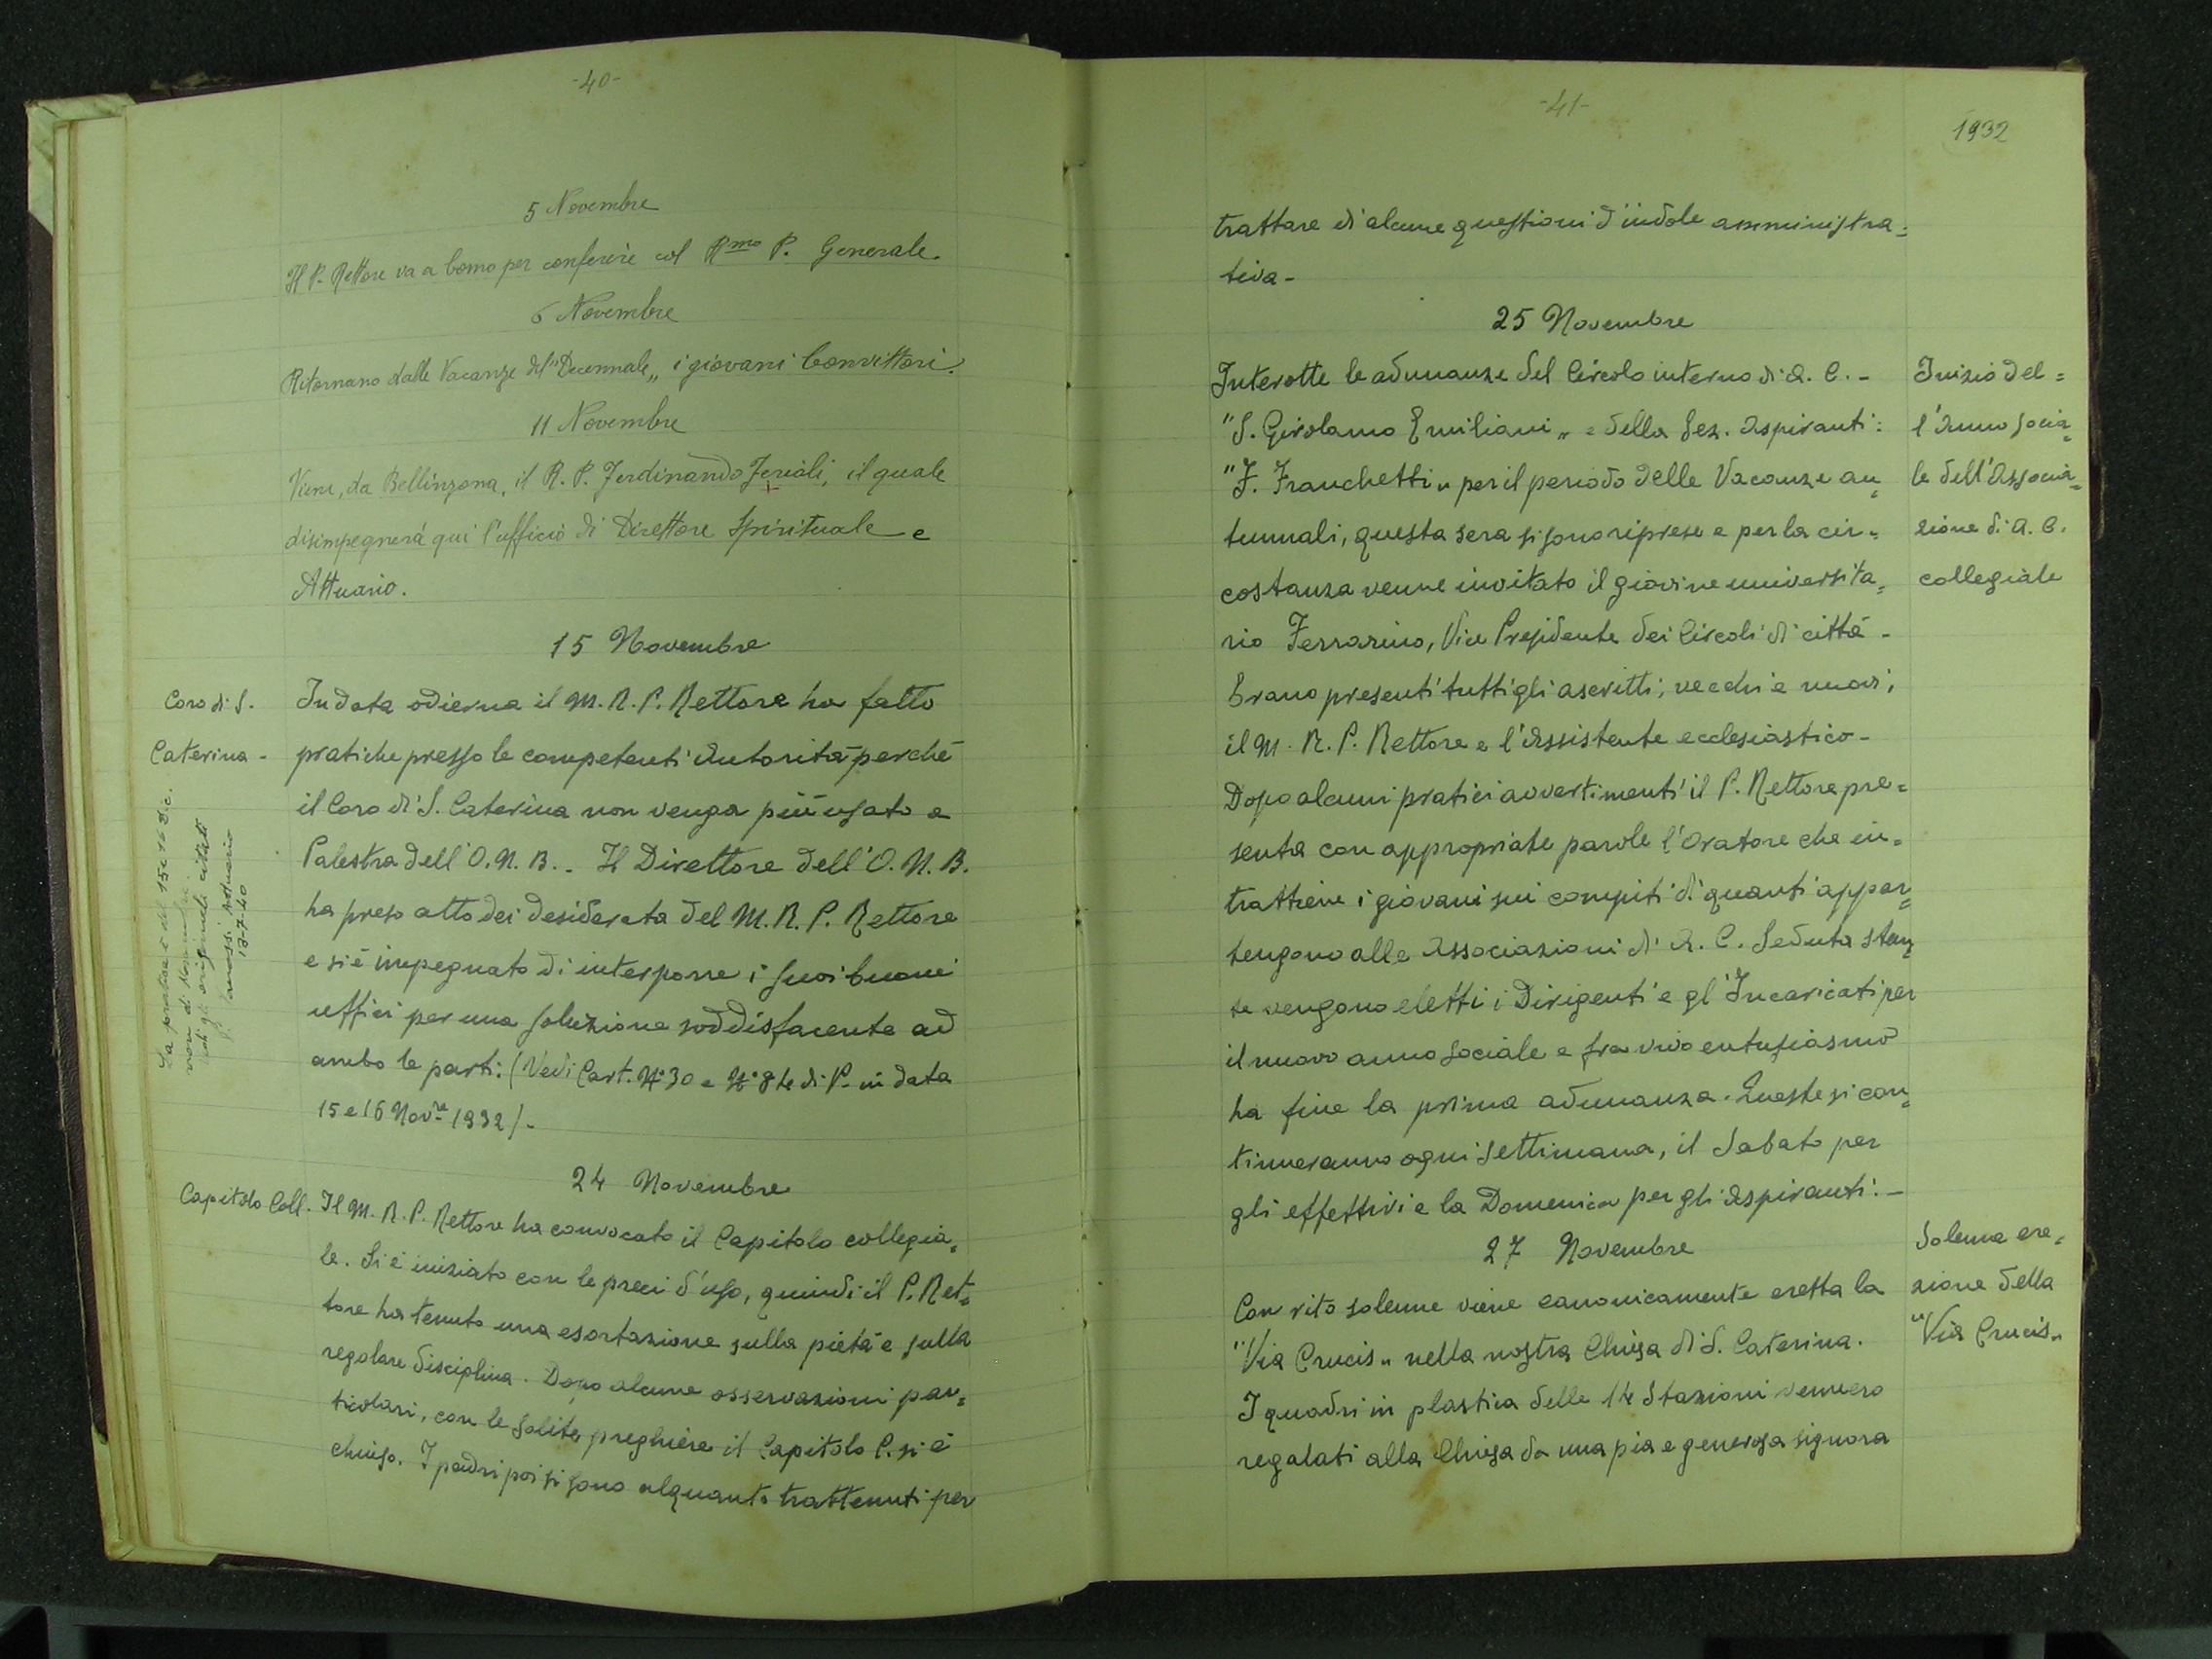 -40-
5 Novembre
Il P. Rettore va a Como per conferire col Rmo P. Generale.
6 Novembre
Ritornano dalle Vacanze del "Decennale„ i giovani Convittori.
11 Novembre
Viene, da Bellinzona, il R. P. Ferdinando Ferioli, il quale
disimpegnerà qui l'ufficio di Direttore Spirituale e
Attuario.
15 Novembre
Coro di S.
Caterina -
In data odierna il M. R. P. Rettore ha fatto
pratiche presso le competenti Autorità perché
il Coro di S. Caterina non venga più usato a
Palestra dell'O. N. B. - Il Direttore dell'O. N. B.
ha preso atto dei desiderata del M. R. P. Rettore
e si è impegnato di interporre i suoi buoni
uffici per una soluzione soddisfacente ad
ambo le parti: (Vedi Cart. N° 30 e N° 84 di P. in data
15 e 16 Novre 1932). -
La pratica è del 15 e 16 Dic.
non di Novembre:
vedi gli originali citati
Attuario
13-7-40
24 Novembre
Capitolo Coll.
Il M. R. P. Rettore ha convocato il Capitolo collegia=
le. Si è iniziato con le preci d'uso, quindi il P. Ret=
tore ha tenuto una esortazione sulla pietà e sulla
regolare disciplina. Dopo alcune osservazioni par=
ticolari, con le solite preghiere il Capitolo C. si è
chiuso. I padri poi si sono alquanto trattenuti per
-41-
1932
trattare di alcune questioni d'indole amministra=
tiva -
25 Novembre
Inizio del=
l'Anno socia=
le dell'Associa=
zione di A. C.
collegiale
Interotte le adunanze del Circolo interno di A. C. -
"S. Girolamo Emiliani„ e della Sez. Aspiranti:
"F. Franchetti„ per il periodo delle Vacanze au=
tunnali, questa sera si sono riprese e per la cir=
costanza venne invitato il giovine universita=
rio Ferrarino, Vice Presidente dei Circoli di città -
Erano presenti tutti gli ascritti, vecchi e nuovi,
il M. R. P. Rettore e l'Assistente ecclesiastico -
Dopo alcuni pratici avvertimenti il P. Rettore pre=
senta con appropriate parole l'Oratore che in=
trattiene i giovani sui compiti di quanti appar=
tengono alle Associazioni di A. C. Seduta stan=
te vengono eletti i Dirigenti e gl'Incaricati per
il nuovo anno sociale e fra vivo entusiasmo
ha fine la prima adunanza. Queste si con=
tinueranno ogni settimana, il Sabato per
gli effettivi e la Domenica per gli Aspiranti. -
27 Novembre
Solenne ere=
zione della
"Via Crucis„
Con rito solenne viene canonicamente eretta la
"Via Crucis„ nella nostra Chiesa di S. Caterina.
I quadri in plastica delle 14 Stazioni vennero
regalati alla Chiesa da una pia e generosa signora